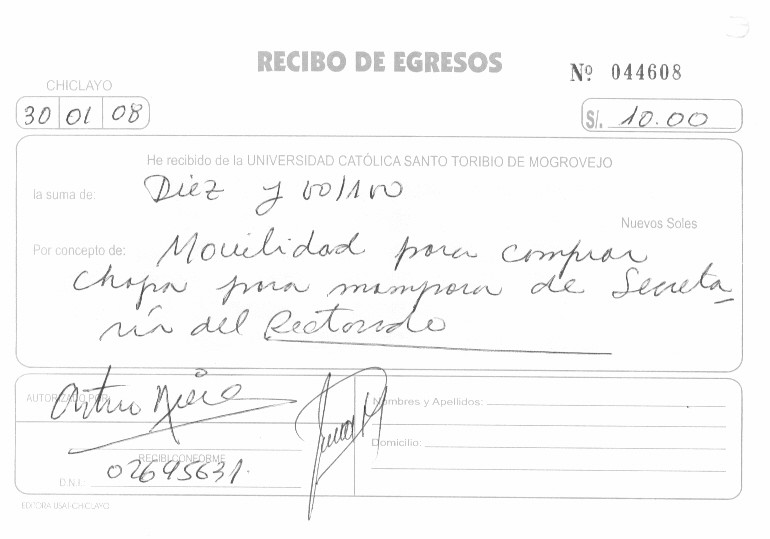 RECIBO DE EGRESOS
Nº 044608
CHICLAYO
30 01 08
S/. 10.00
He recibido de la UNIVERSIDAD CATÓLICA SANTO TORIBIO DE MOGROVEJO
la suma de: Diez y 00/100
Nuevos Soles
Por concepto de: Movilidad para comprar
chapa para mampara de Secreta-
ría del Rectorado
AUTORIZADO POR: Arturo
Nombres y Apellidos:
Domicilio:
RECIBI CONFORME
D.N.I. 02695631.
EDITORA USAT-CHICLAYO